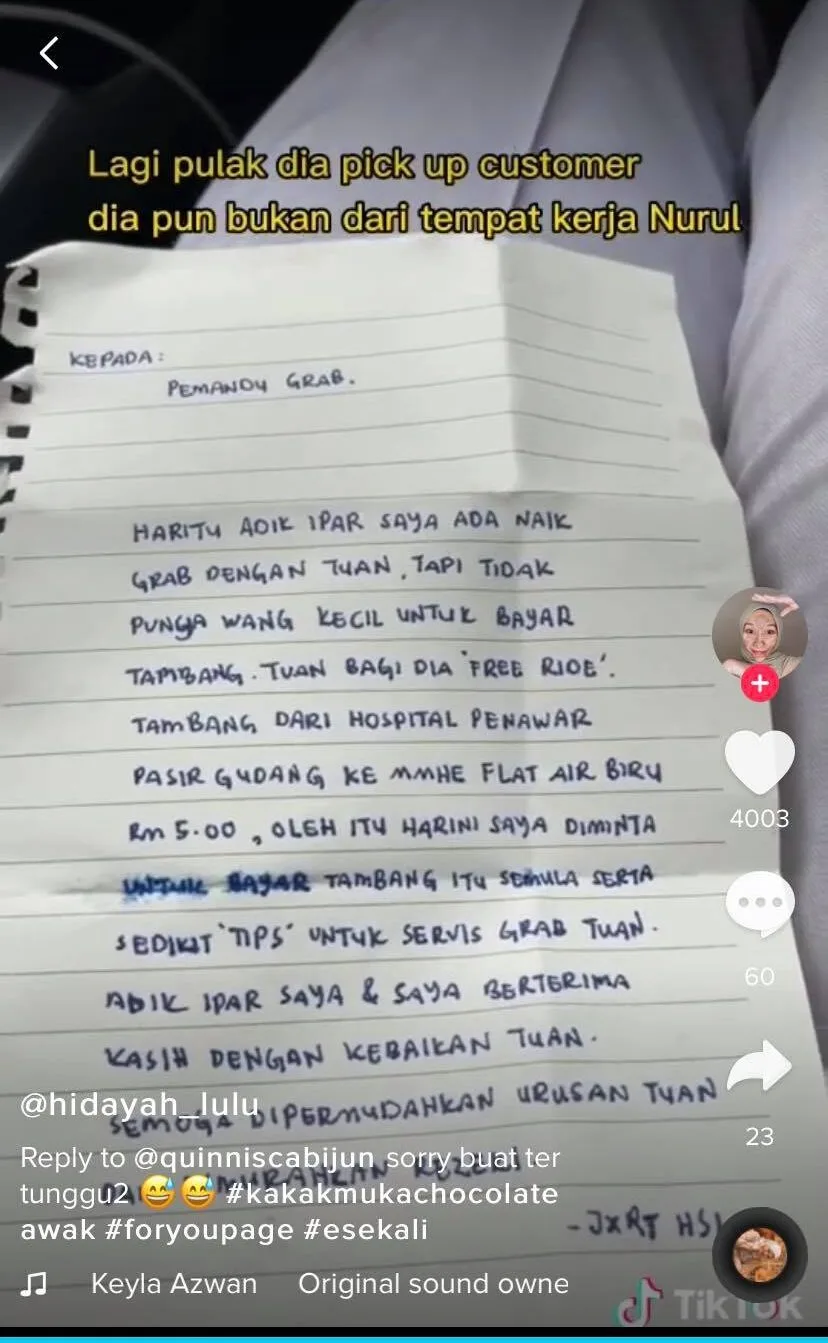 Lagi pulak dia pick up customer
dia pun bukan dari tempat kerja Nurul
KEPADA :
PEMANDU GRAB.
HARITU ADIK IPAR SAYA ADA NAIK
GRAB DENGAN TUAN, TAPI TIDAK
PUNYA WANG KECIL UNTUK BAYAR
TAMBANG. TUAN BAGI DIA 'FREE RIDE'.
TAMBANG DARI HOSPITAL PENAWAR
PASIR GUDANG KE MMHE FLAT AIR BIRU
RM 5.00, OLEH ITU HARINI SAYA DIMINTA
UNTUK BAYAR TAMBANG ITU SEMULA SERTA
SEDIKIT 'TIPS' UNTUK SERVIS GRAB TUAN.
ADIK IPAR SAYA & SAYA BERTERIMA
KASIH DENGAN KEBAIKAN TUAN.
SEMOGA DIPERMUDAHKAN URUSAN TUAN
- JXRT HSI
4003
60
23
@hidayah_lulu
Reply to @quinniscabijun sorry buat ter
tunggu2 😅😅 #kakakmukachocolate
awak #foryoupage #esekali
Keyla Azwan Original sound owne
TikTok